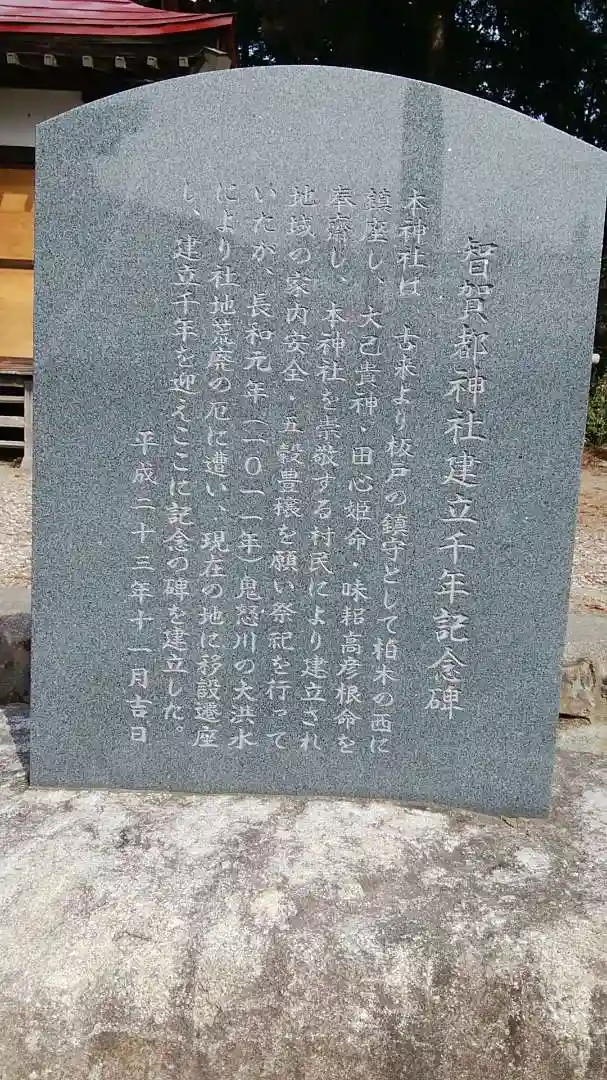 智賀都神社建立千年記念碑
本神社は、古来より板戸の鎮守として柏木の西に
鎮座し、大己貴神・田心姫命・味耜高彦根命を
奉齋し、本神社を崇敬する村民により建立され
地域の家内安全・五穀豊穣を願い祭祀を行って
いたが、長和元年(一〇一一年)鬼怒川の大洪水
により社地荒廃の厄に遭い、現在の地に移設遷座
し、建立千年を迎えここに記念の碑を建立した。
平成二十三年十一月吉日